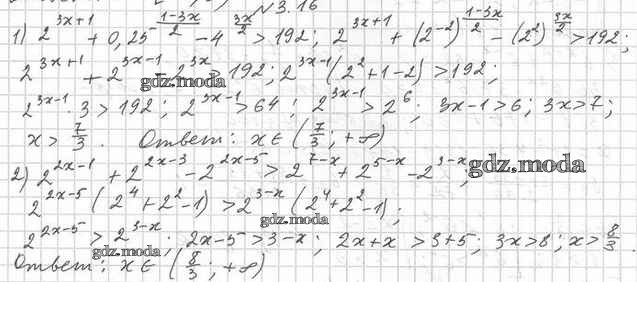 №3.16
1) 2^{3x+1} + 0,25^{\frac{1-3x}{2}} - 4^{\frac{3x}{2}} > 192; 2^{3x+1} + (2^{-2})^{\frac{1-3x}{2}} - (2^2)^{\frac{3x}{2}} > 192;
2^{3x+1} + 2^{3x-1} - 2^{3x} > 192; 2^{3x-1}(2^2+1-2) > 192;
gdz.moda
2^{3x-1} · 3 > 192; 2^{3x-1} > 64; 2^{3x-1} > 2^6; 3x-1 > 6; 3x > 7;
x > \frac{7}{3}. Ответ: x ∈ (\frac{7}{3}; +∞)
2) 2^{2x-1} + 2^{2x-3} - 2^{2x-5} > 2^{7-x} + 2^{5-x} - 2^{3-x};
gdz.moda
2^{2x-5}(2^4+2^2-1) > 2^{3-x}(2^4+2^2-1);
gdz.moda
2^{2x-5} > 2^{3-x}; 2x-5 > 3-x; 2x+x > 3+5; 3x > 8; x > \frac{8}{3}.
gdz.moda
Ответ: x ∈ (\frac{8}{3}; +∞)